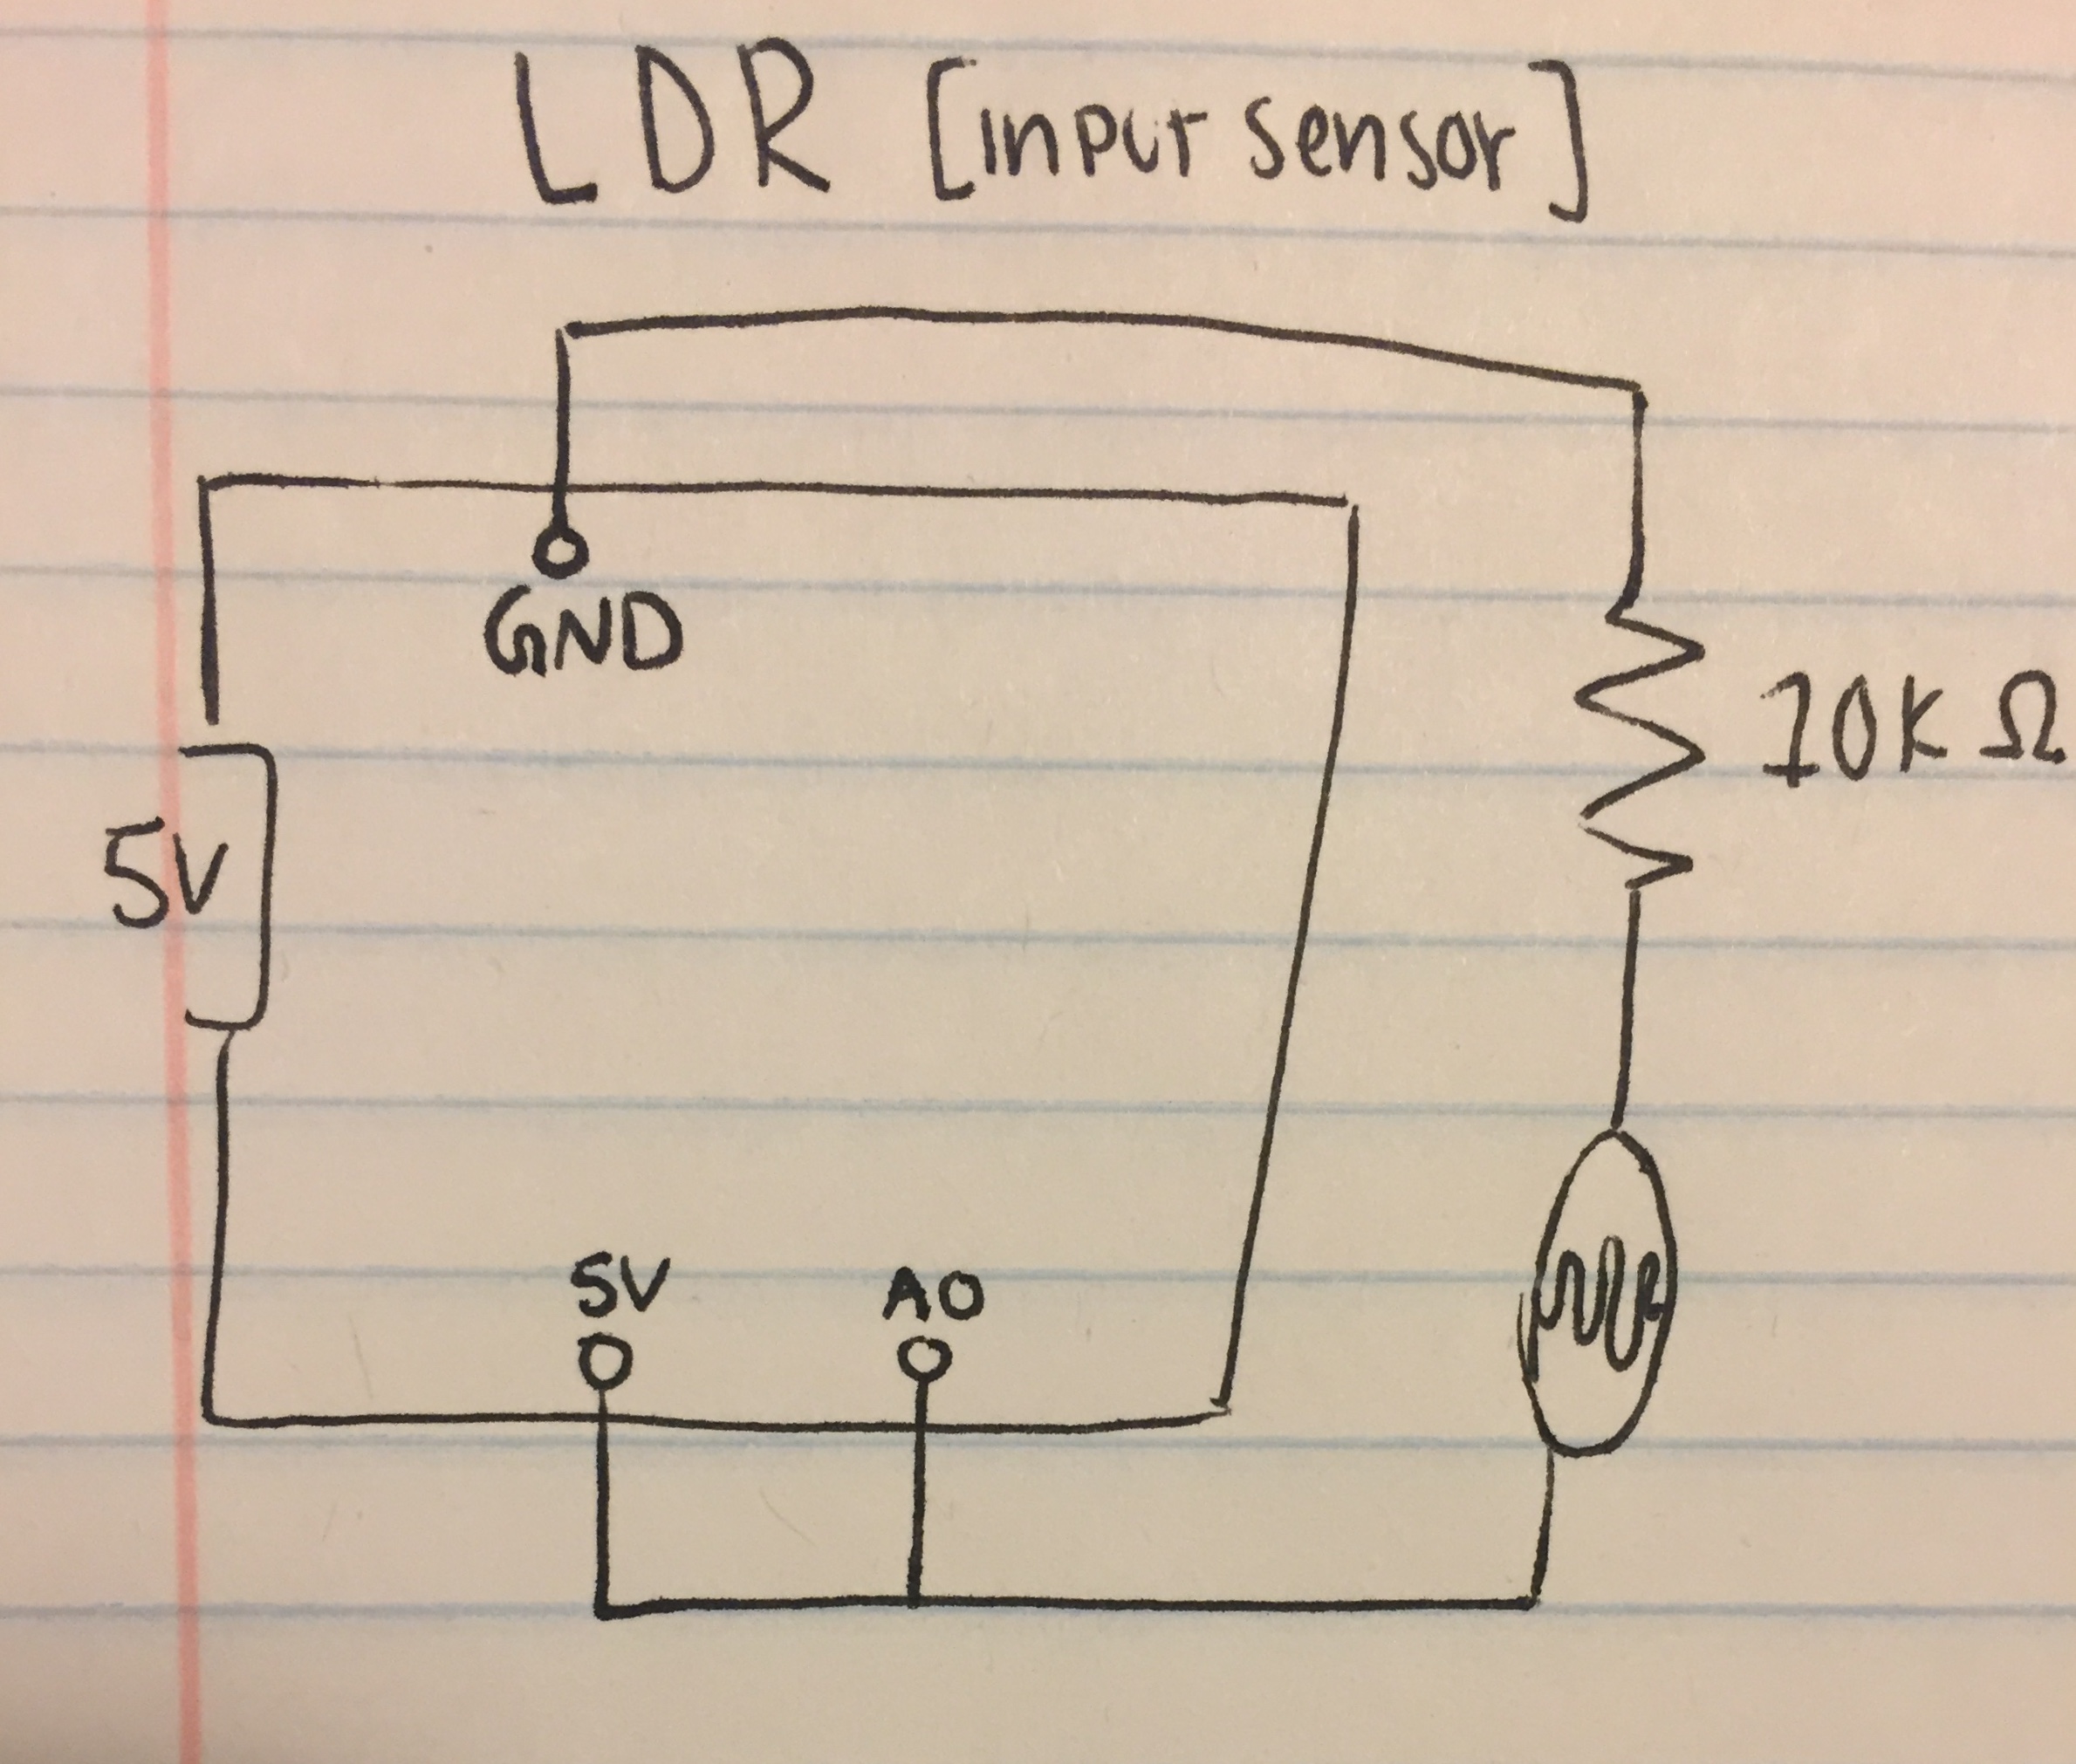 LDR [input sensor]
GND
10K Ω
5V
5V
A0